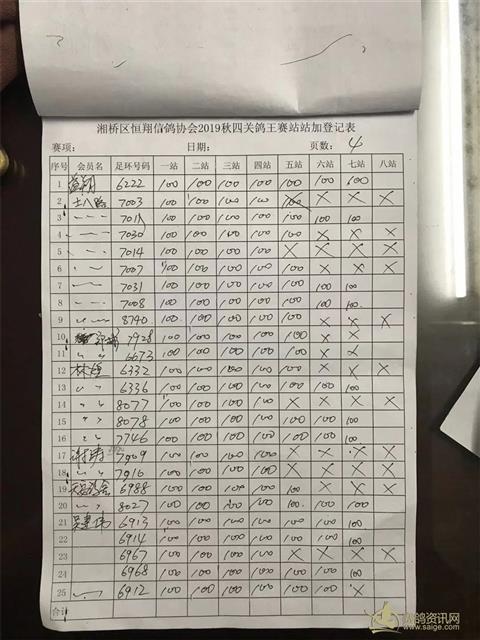 湘桥区恒翔信鸽协会2019秋四关鸽王赛站站加登记表
赛项： 日期： 页数： 4
序号 会员名 足环号码 一站 二站 三站 四站 五站 六站 七站 八站
1 6222 100 100 100 100 100 100 100
2 7003 100 100 100 100 X X X
3 7011 100 100 100 100 100 100 100
4 7030 100 100 100 100 100 X X X
5 7014 100 100 100 100 X X X X
6 7007 100 100 100 100 100 X X X
7 7031 100 100 100 100 100 100 100
8 7008 100 100 100 100 100 100 100
9 8740 100 100 100 100 100 X X X
10 7928 100 100 100 100 100 X X
11 6673 100 100 100 100 100 X X
12 林 6332 100 100 100 100 100 X X X
13 〃 〃 6336 100 100 100 100 100 100 100
14 〃 〃 8077 100 100 100 100 X X X X
15 〃 〃 8078 100 100 100 100 100 100 100
16 〃 〃 7746 100 100 100 100 100 100 100
17 谢 7909 100 100 100 100 X X X X
18 〃 〃 7916 100 100 100 100 X X X X
19 6988 100 100 100 100 100 X X X
20 〃 〃 8027 100 100 100 100 100 100 100
21 吴 6913 100 100 100 100 100 100 100
22 6914 100 100 100 100 100 100 100
23 6967 100 100 100 100 X X X X
24 6968 100 100 100 100 100 100 100
25 6912 100 100 100 100 100 100 X
合计
赛鸽资讯网
www.saige.com